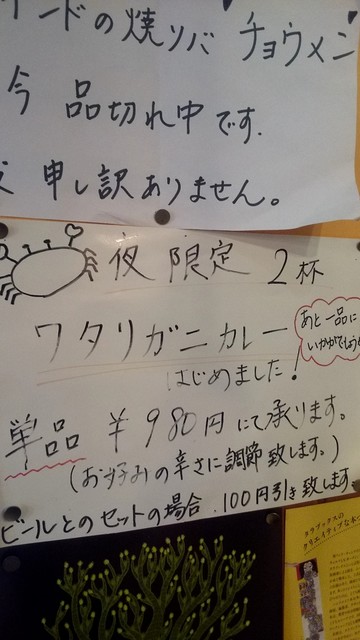 ードの焼ソバ チョウメン
今 品切れ中です.
申し訳ありません。
夜限定 2杯
ワタリガニカレー
はじめました!
あと一品に
いかがでしょうか
単品 ¥980円にて承ります。
(お好みの辛さに調節致します。)
ビールとのセットの場合.100円引き致します
タラブックスの
クリエイティブな本